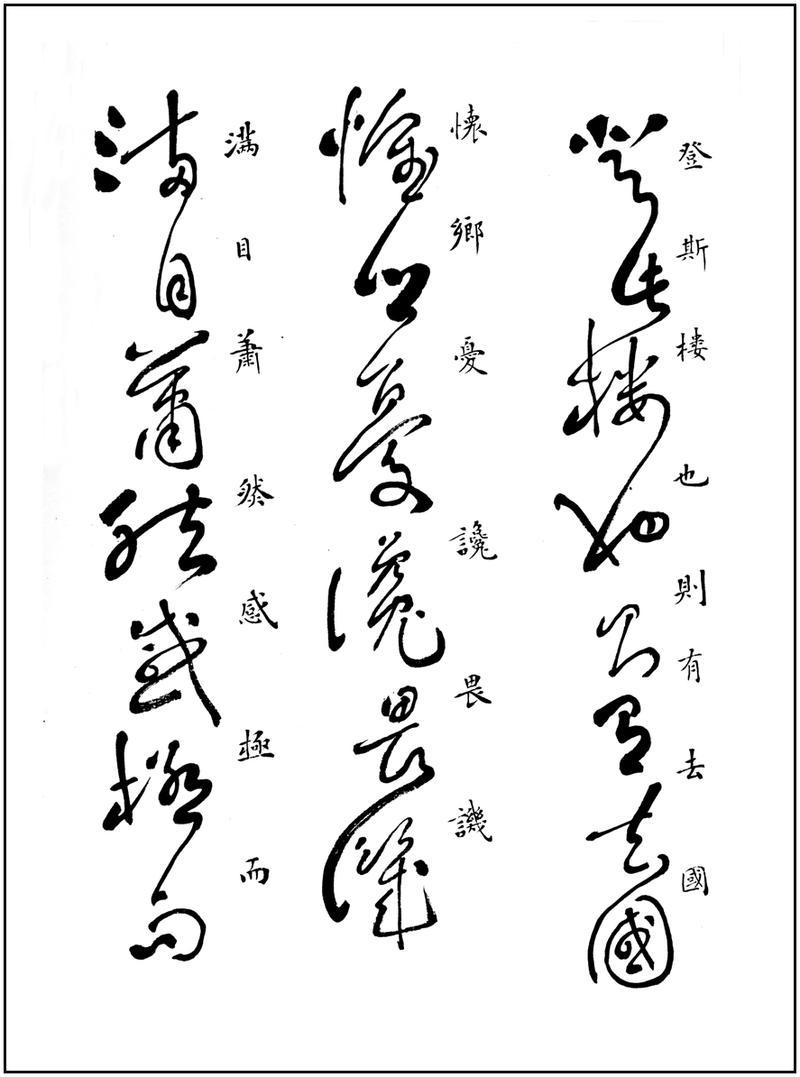 登斯楼也則有去國
懷鄉憂讒畏譏
满目蕭然感極而